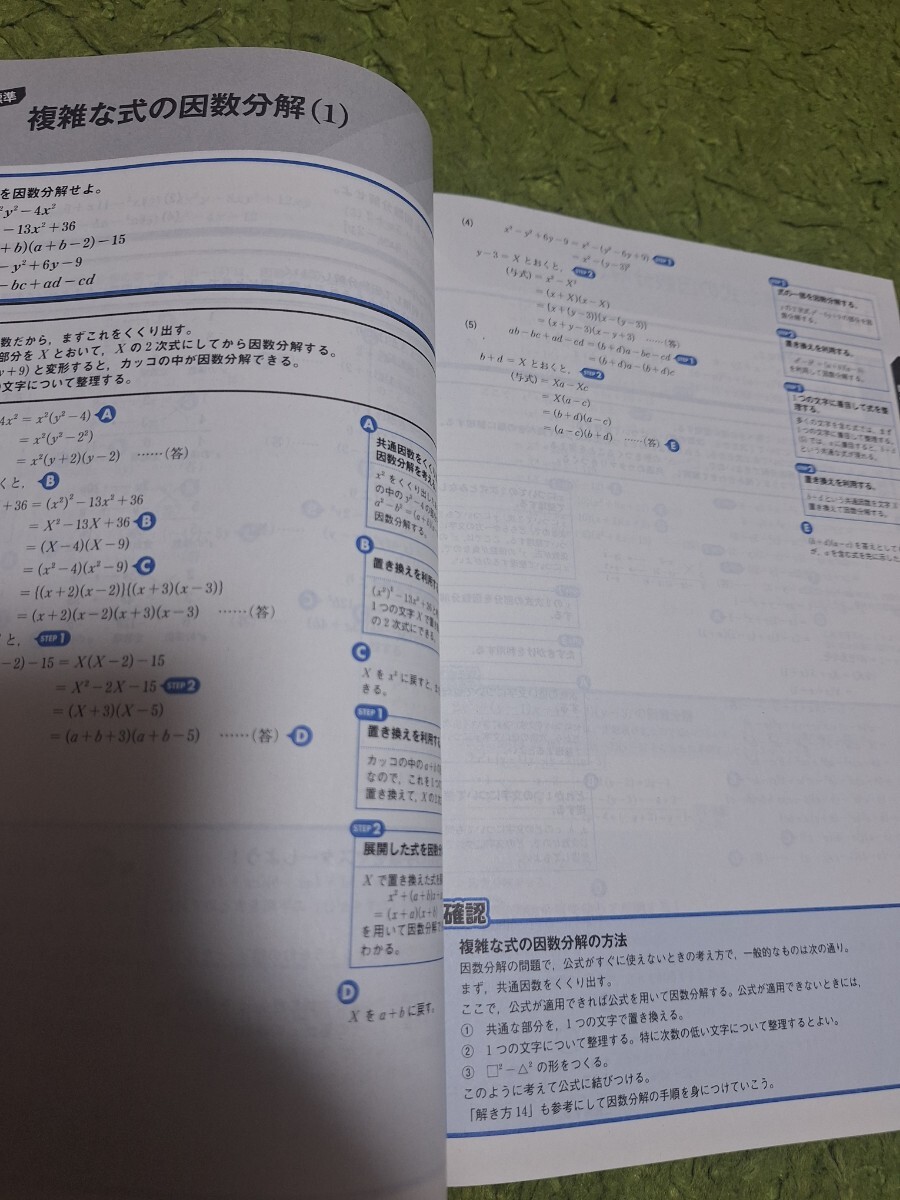 標準
複雑な式の因数分解(1)
を因数分解せよ。
y²−4x²
−13x²+36
+b)(a+b−2)−15
−y²+6y−9
−bc+ad−cd
数だから，まずこれをくくり出す。
部分をXとおいて，Xの2次式にしてから因数分解する。
y+9)と変形すると，カッコの中が因数分解できる。
の文字について整理する。
4x²=x²(y²−4) A
=x²(y²−2²)
=x²(y+2)(y−2) ……(答)
くと， B
+36=(x²)²−13x²+36
=X²−13X+36 B
=(X−4)(X−9)
=(x²−4)(x²−9) C
={(x+2)(x−2)}{(x+3)(x−3)}
=(x+2)(x−2)(x+3)(x−3) ……(答)
と， STEP 1
−2)−15=X(X−2)−15
=X²−2X−15 STEP 2
=(X+3)(X−5)
=(a+b+3)(a+b−5) ……(答) D
A
共通因数をくく
因数分解を考え
x²をくくり出した
の中のy²−4の
a²−b²=(a+b)
因数分解する。
B
置き換えを利用す
(x²)²−13x²+36と
1つの文字Xで置
の2次式にできる。
C
Xをx²に戻すと，
きる。
STEP 1
置き換えを利用す
カッコの中のa+b
なので，これを1つ
置き換えて，Xの2
STEP 2
展開した式を因数分
Xで置き換えた式を
x²+(a+b)x+
=(x+a)(x+b)
を用いて因数分解で
わかる。
D
Xをa+bに戻す。
(4)
x²−y²+6y−9=x²−(y²−6y+9) STEP 1
=x²−(y−3)²
y−3=Xとおくと， STEP 2
(与式)=x²−X²
=(x+X)(x−X)
={x+(y−3)}{x−(y−3)}
=(x+y−3)(x−y+3) ……(答)
(5)
ab−bc+ad−cd=(b+d)a−bc−cd STEP 1
=(b+d)a−(b+d)c
b+d=Xとおくと， STEP 2
(与式)=Xa−Xc
=X(a−c)
=(b+d)(a−c)
=(a−c)(b+d) ……(答) E
STEP 1
式の一部を因数分解する。
分解する。
STEP 2
置き換えを利用する。
を利用して因数分解する。
STEP 1
1つの文字に着目して式を整
理する。
多くの文字を含む式では，まず
1つの文字に着目して整理する。
という共通な式が現れる。
STEP 2
置き換えを利用する。
b+dという共通因数を文字X
置き換えて因数分解する。
E
(b+d)(a−c)を答えとして
が，aを含む式を先に示した
確認
複雑な式の因数分解の方法
因数分解の問題で，公式がすぐに使えないときの考え方で，一般的なものは次の通り。
まず，共通因数をくくり出す。
ここで，公式が適用できれば公式を用いて因数分解する。公式が適用できないときには，
① 共通な部分を，1つの文字で置き換える。
② 1つの文字について整理する。特に次数の低い文字について整理するとよい。
③ □²−△²の形をつくる。
このように考えて公式に結びつける。
「解き方14」も参考にして因数分解の手順を身につけていこう。